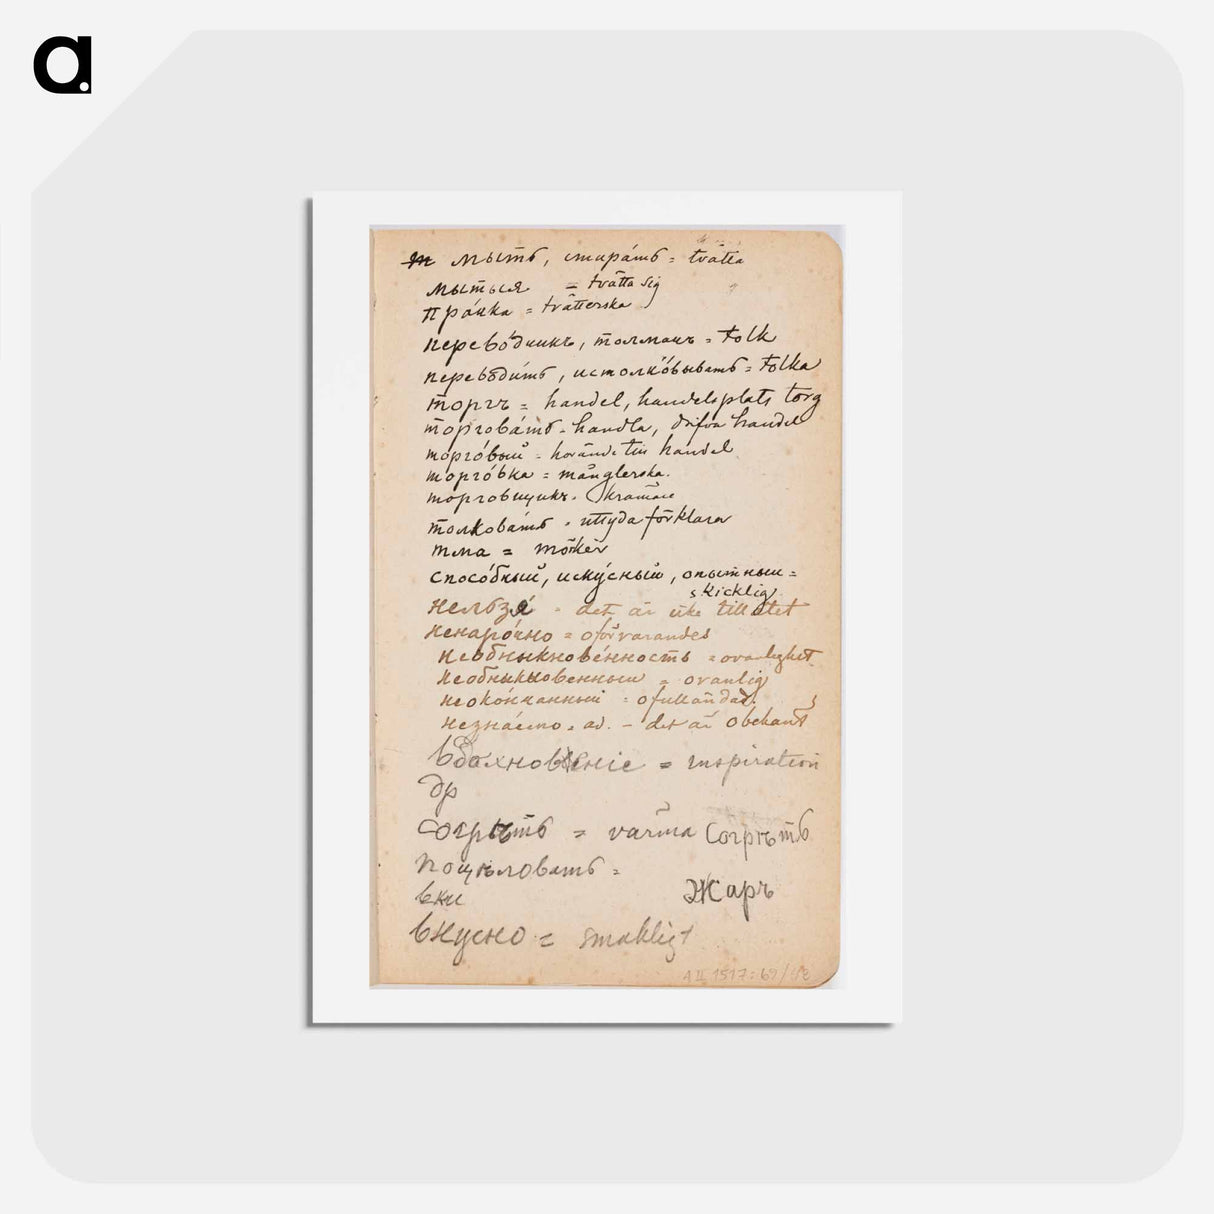 a.
мыть, стирать = tvätta
мыться = tvätta sig
прачка = tvätterska
перево́дчикъ, толмачъ = tolk
переводи́ть, истолко́вывать = tolka
торгъ = handel, handelsplats torg
торгова́ть = handla, drifva handel
торго́вый = hörande till handel
торго́вка = månglerska.
торговщикъ = krämare
толкова́ть = uttyda förklara
тма = mörker
спосо́бный, иску́сный, опытный =
skicklig
нельзя́ = det är icke tillåtet
ненаро́чно = oförvarandes
необыкнове́нность = ovanlighet
необыкновенный = ovanlig
неоко́нчанный = ofulländad.
незна́емо, ad. - det är obekant
вдохновеніе = inspiration
др
согрѣть = värma Согрѣть
поцѣловать =
вки Жаръ
вкусно = smakligt
A II 1517:62/42